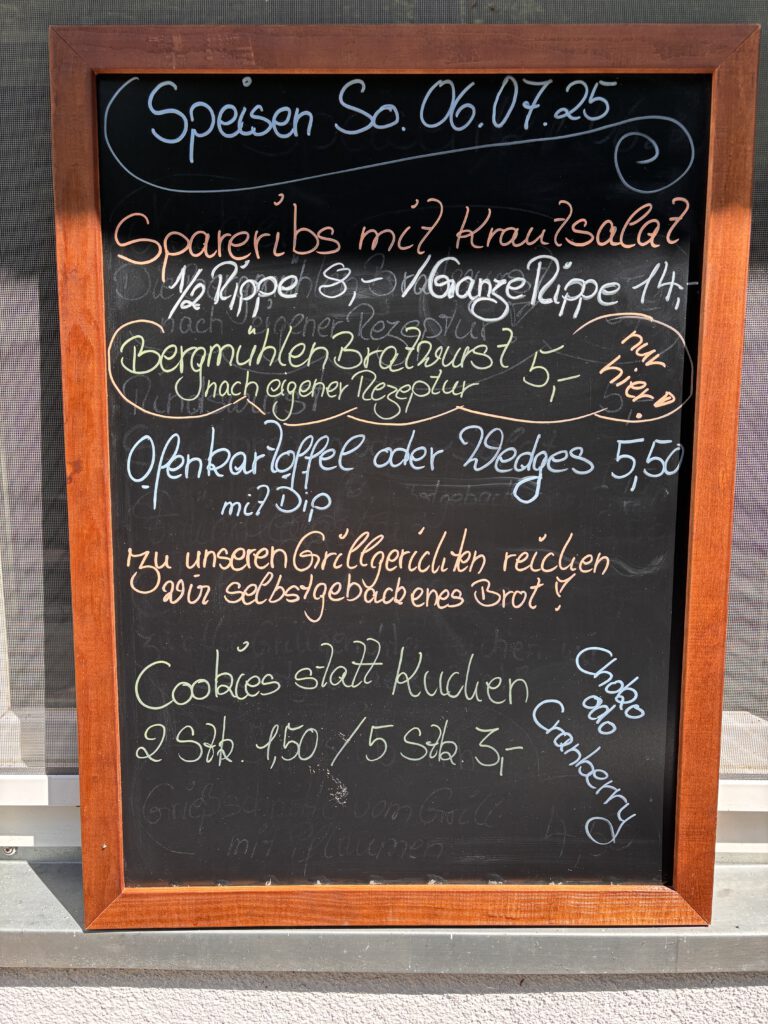 Speisen So. 06.07.25
Spareribs mit Krautsalat
1/2 Rippe 8,- / Ganze Rippe 14,-
Bergmühlen Bratwurst 5,-
nach eigener Rezeptur
nur
hier!
Ofenkartoffel oder Wedges 5,50
mit Dip
Zu unseren Grillgerichten reichen
wir selbstgebackenes Brot!
Cookies statt Kuchen
2 Stk. 1,50 / 5 Stk. 3,-
Choko
odo
Cranberry
Grießschnitte vom Grill
mit Pflaumen